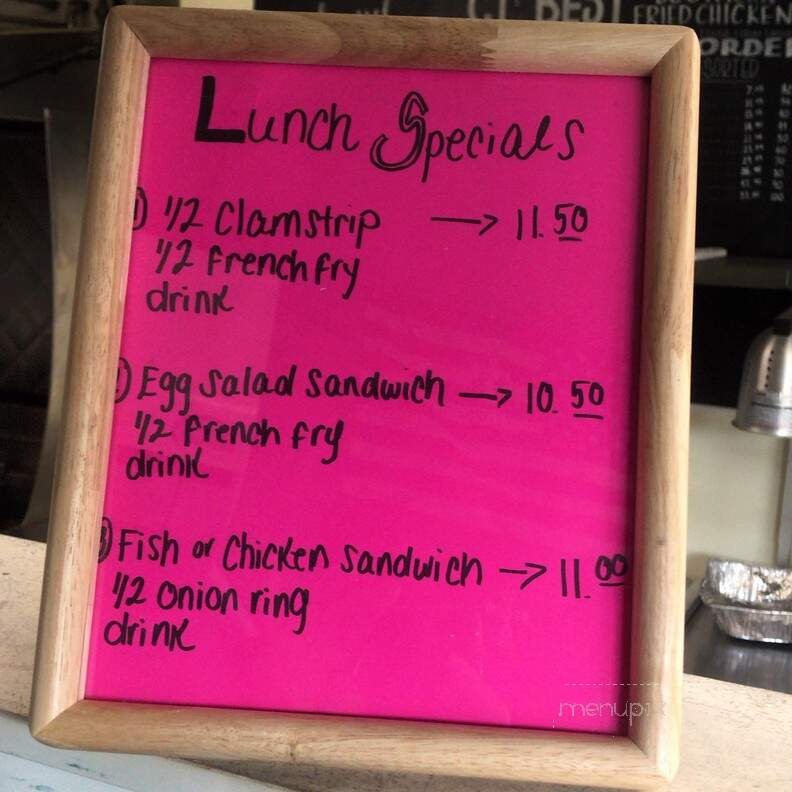 CT BEST
FRIED CHICKEN
ORDER
Lunch Specials
① 1/2 Clamstrip → 11.50
1/2 French fry
drink
② Egg Salad Sandwich → 10.50
1/2 French fry
drink
③ Fish or Chicken Sandwich → 11.00
1/2 Onion ring
drink
menupix